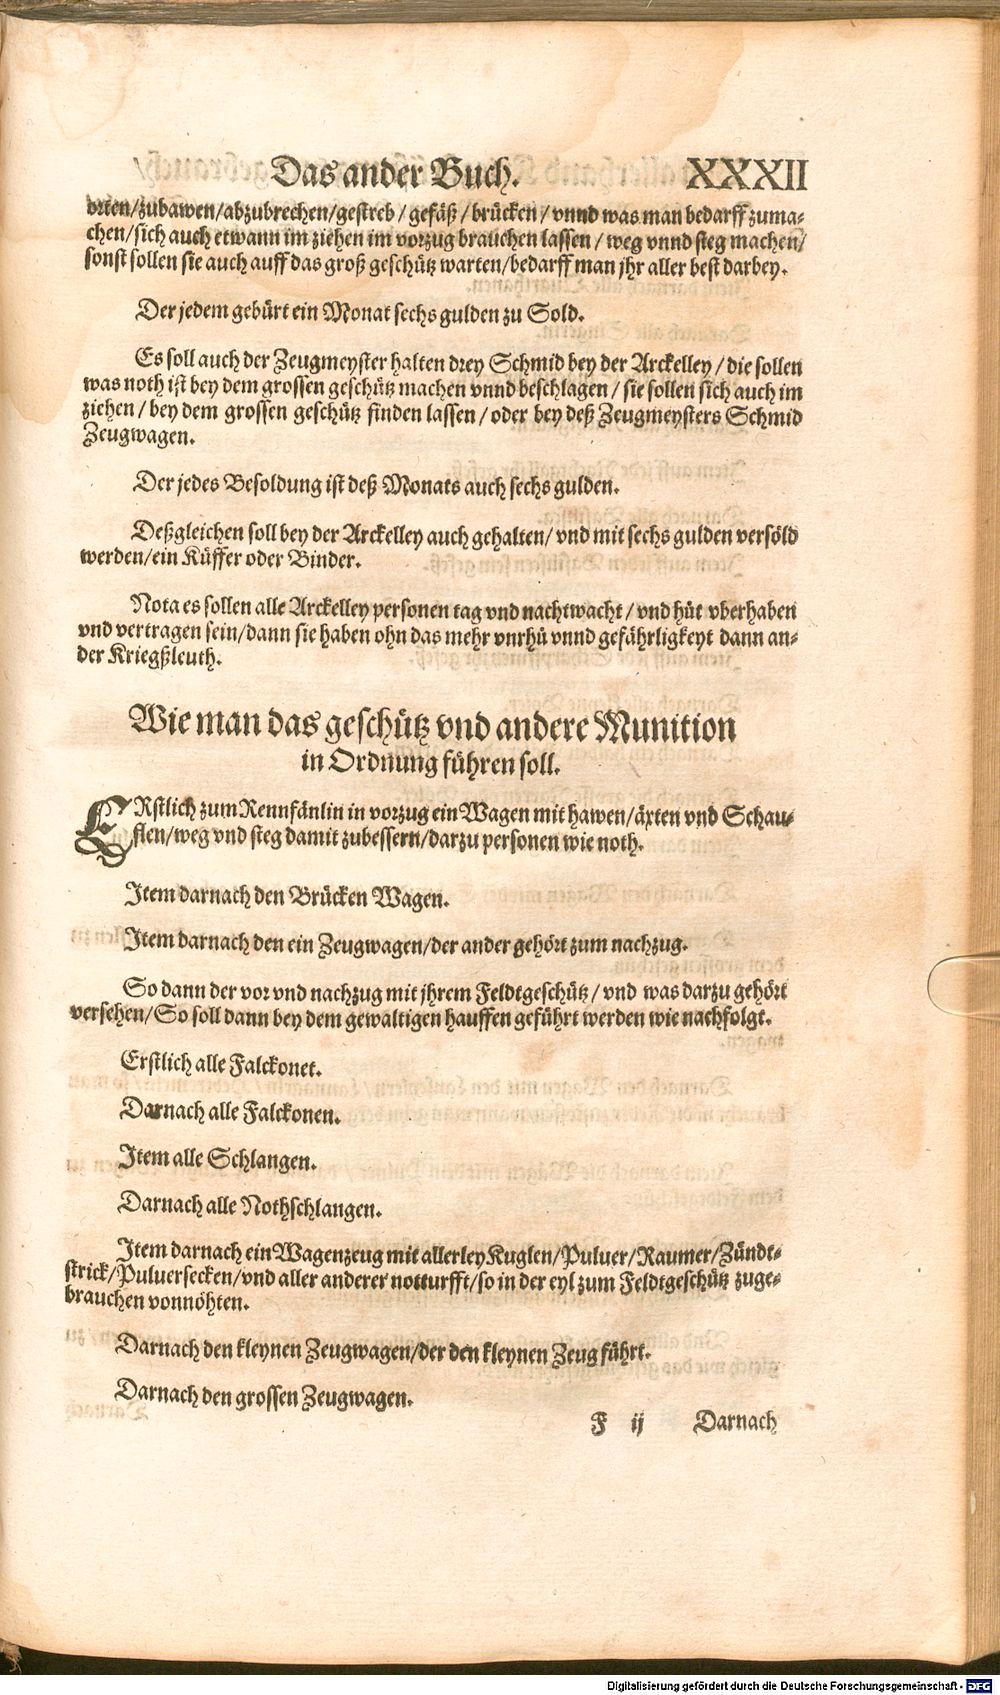 Das ander Buch. XXXII
orten/zubawen/abzubrechen/gestreb/gefäß/brücken/vnnd was man bedarff zuma-
chen/sich auch etwann im ziehen im vorzug brauchen lassen/weg vnnd steg machen/
sonst sollen sie auch auff das groß geschütz warten/bedarff man jhr aller best darbey.
Der jedem gebürt ein Monat sechs gulden zu Sold.
Es soll auch der Zeugmeyster halten drey Schmid bey der Arckelley/die sollen
was noth ist bey dem grossen geschütz machen vnnd beschlagen/sie sollen sich auch im
ziehen/bey dem grossen geschütz finden lassen/oder bey deß Zeugmeysters Schmid
Zeugwagen.
Der jedes Besoldung ist deß Monats auch sechs gulden.
Deßgleichen soll bey der Arckelley auch gehalten/vnd mit sechs gulden versöld
werden/ein Küffer oder Binder.
Nota es sollen alle Arckelley personen tag vnd nachtwacht/vnd hüt vberhaben
vnd vertragen sein/dann sie haben ohn das mehr vnrhü vnnd gefährligkeyt dann an-
der Kriegßleuth.
Wie man das geschütz vnd andere Munition
in Ordnung führen soll.
ERstlich zum Rennfänlin in vorzug ein Wagen mit hawen/äxten vnd Schau-
flen/weg vnd steg damit zubessern/darzu personen wie noth.
Item darnach den Brücken Wagen.
Item darnach den ein Zeugwagen/der ander gehört zum nachzug.
So dann der vor vnd nachzug mit jhrem Feldtgeschütz/vnd was darzu gehört
versehen/So soll dann bey dem gewaltigen hauffen geführt werden wie nachfolgt.
Erstlich alle Falckonet.
Darnach alle Falckonen.
Item alle Schlangen.
Darnach alle Nothschlangen.
Item darnach ein Wagenzeug mit allerley Kuglen/Puluer/Raumer/Zündt-
strick/Puluersecken/vnd aller anderer notturfft/so in der eyl zum Feldtgeschütz zuge-
brauchen vonnöhten.
Darnach den kleynen Zeugwagen/der den kleynen Zeug führt.
Darnach den grossen Zeugwagen.
F ij Darnach
Digitalisierung gefördert durch die Deutsche Forschungsgemeinschaft - DFG